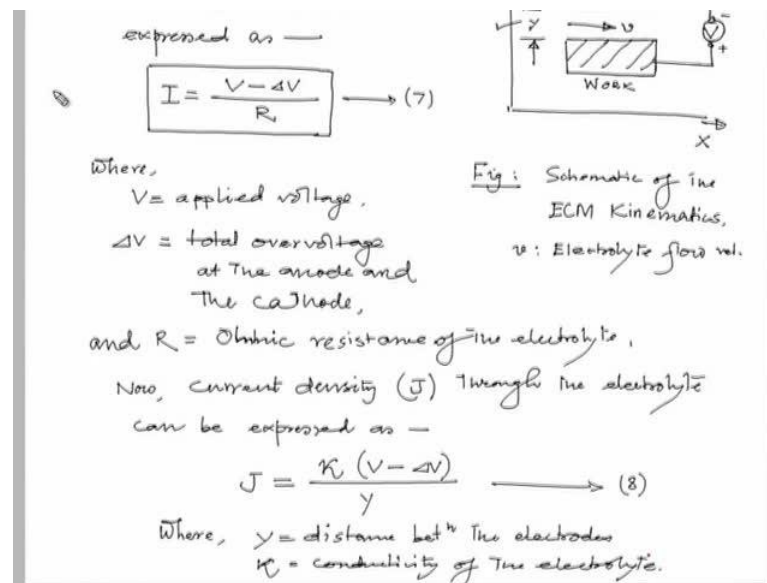 expressed as —
I = V - ΔV / R → (7)
y
v
V
-
+
WORK
X
Where,
V = applied voltage,
ΔV = total overvoltage
at The anode and
The cathode,
Fig : Schematic of the
ECM Kinematics,
v : Electrolyte flow vel.
and R = Ohmic resistance of the electrolyte,
Now, current density (J) Through the electrolyte
can be expressed as —
J = K (V - ΔV) / y → (8)
Where, y = distance betⁿ The electrodes
K = conductivity of The electrolyte.